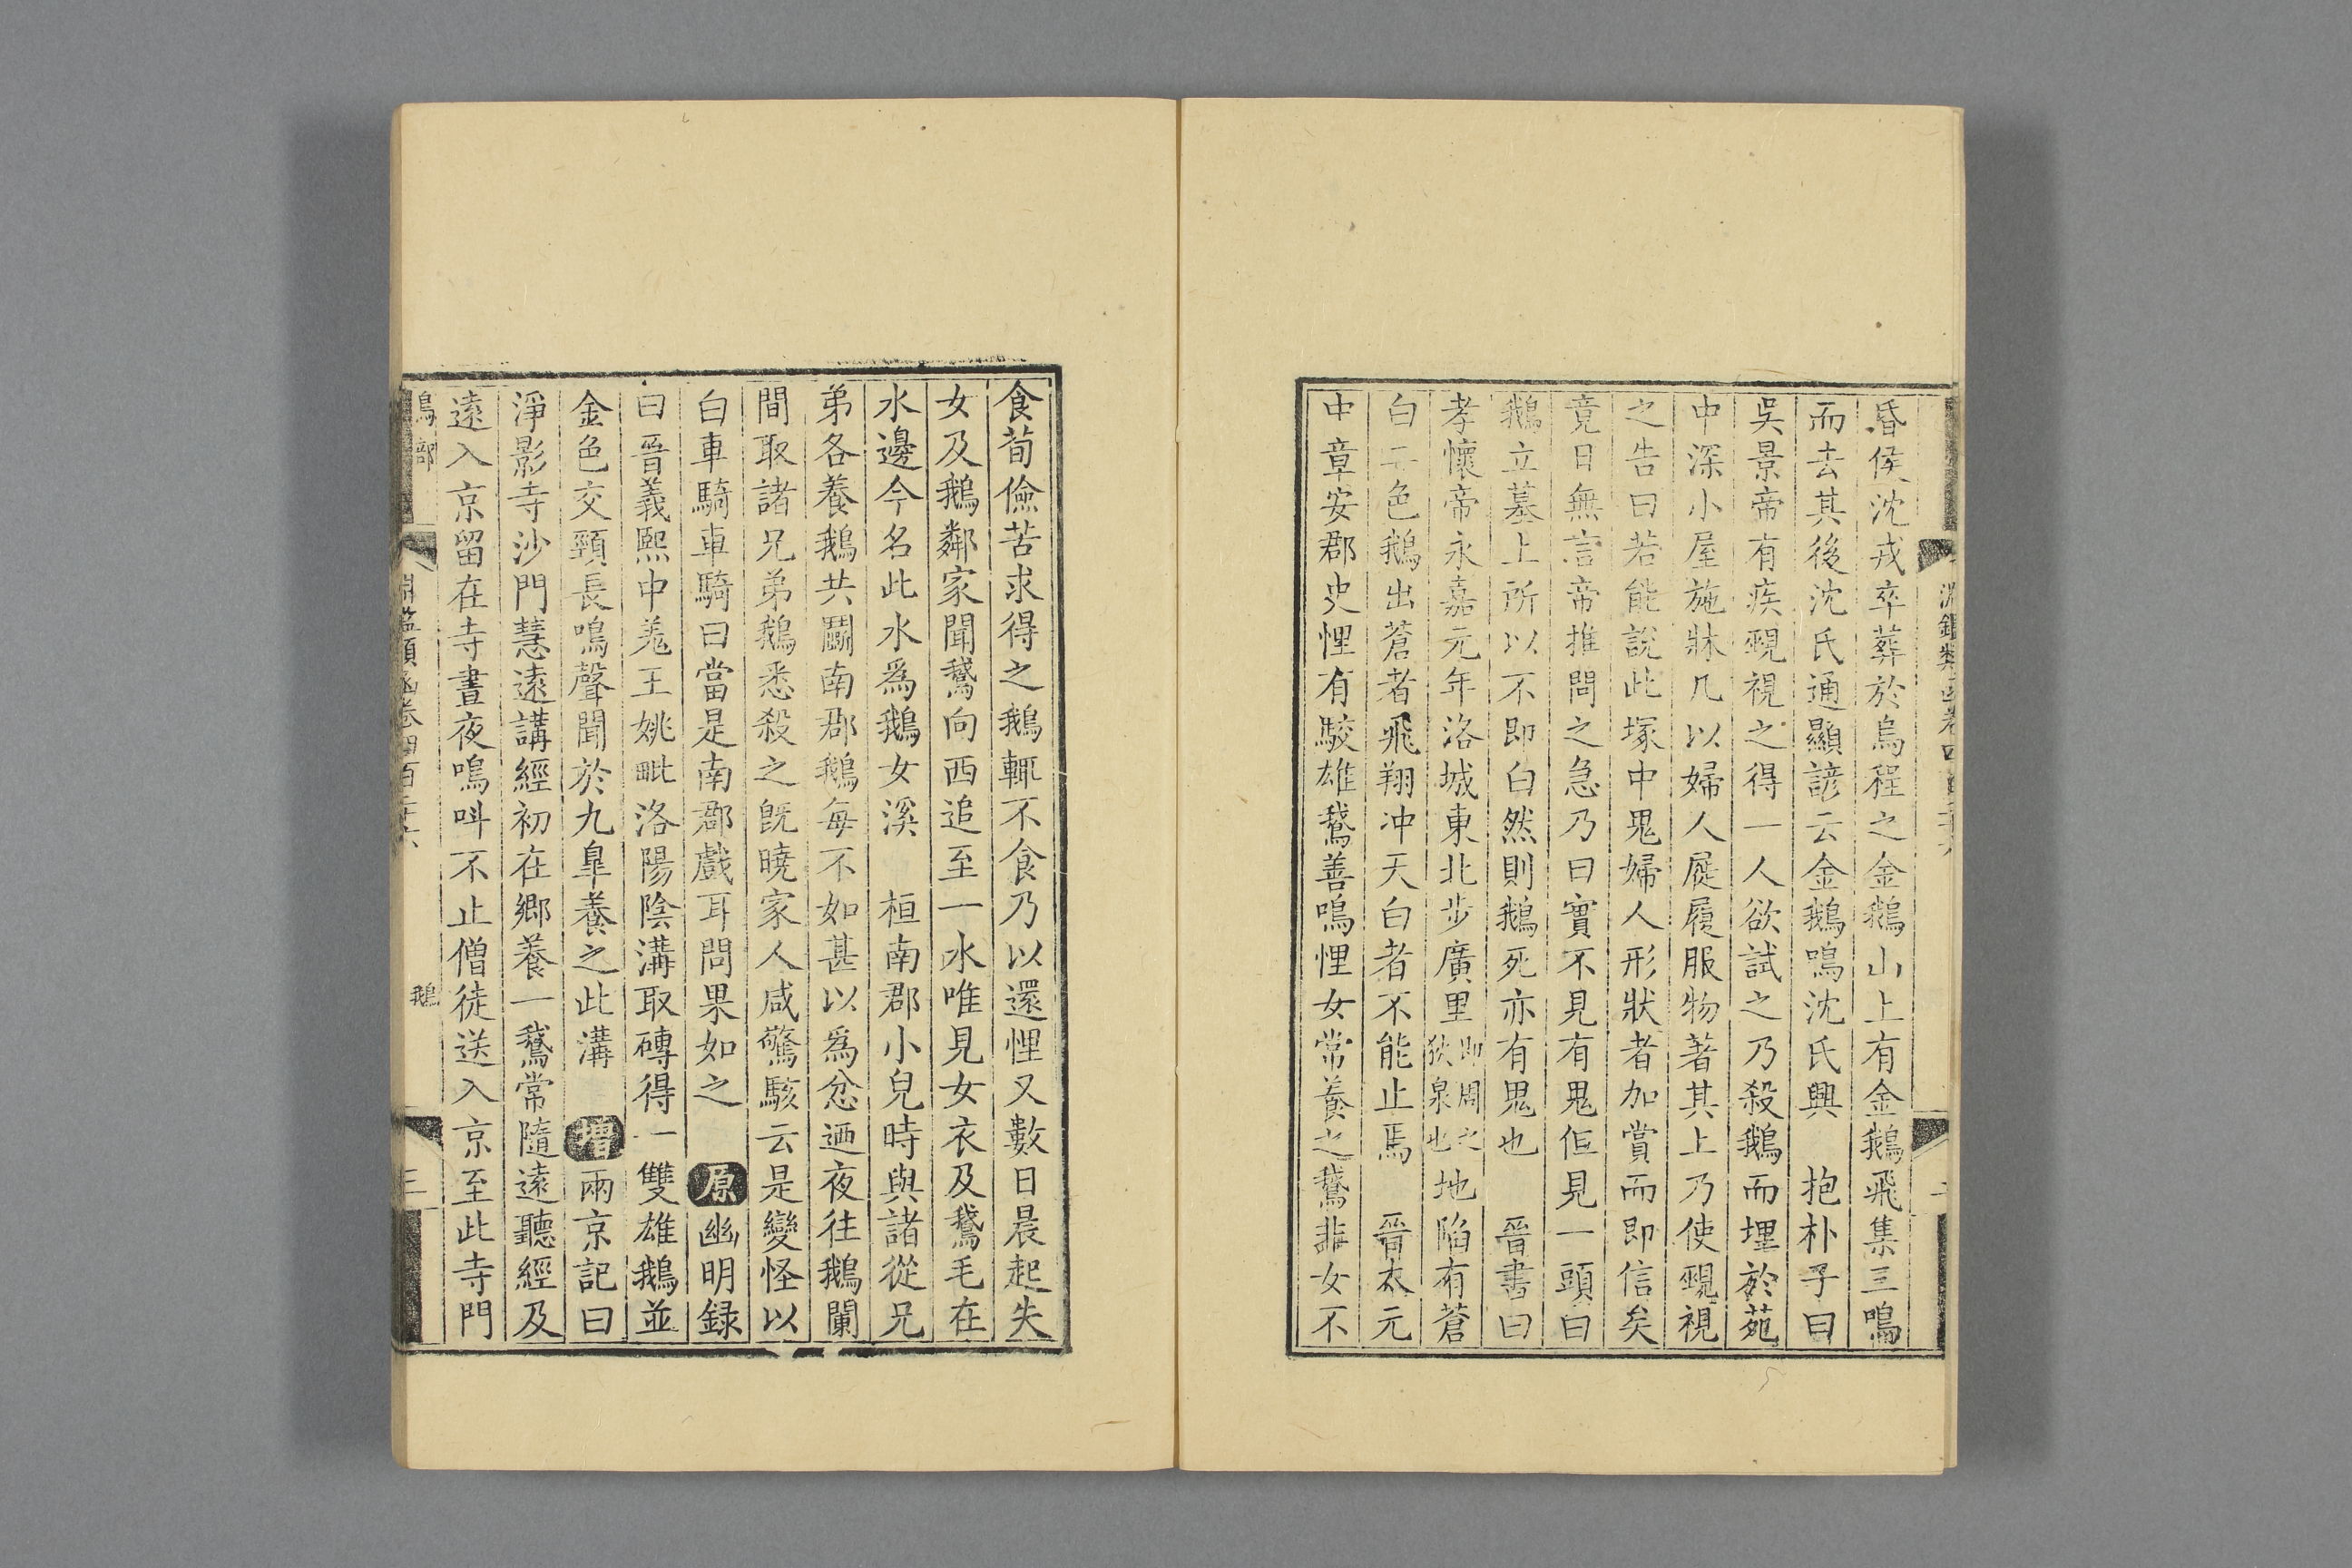 昏侯沈戎卒葬於烏程之金鵝山上有金鵝飛集三鳴
而去其後沈氏通顯諺云金鵝鳴沈氏興　抱朴子曰
吳景帝有疾覡視之得一人欲試之乃殺鵝而埋於苑
中深小屋施牀几以婦人屣履服物著其上乃使覡視
之告曰若能說此塚中鬼婦人形狀者加賞而即信矣
竟日無言帝推問之急乃曰實不見有鬼但見一頭白
鵝立墓上所以不即白然則鵝死亦有鬼也　晉書曰
孝懷帝永嘉元年洛城東北步廣里即周之狄泉也地陷有蒼
白二色鵝出蒼者飛翔冲天白者不能止焉　晉太元
中章安郡史悝有駮雄鵞善鳴悝女常養之鵞非女不
食荀儉苦求得之鵝輒不食乃以還悝又數日晨起失
女及鵝鄰家聞鵞向西追至一水唯見女衣及鵞毛在
水邊今名此水爲鵝女溪　桓南郡小兒時與諸從兄
弟各養鵝共鬭南郡鵝每不如甚以爲忿迺夜往鵝闌
間取諸兄弟鵝悉殺之旣曉家人咸驚駭云是變怪以
白車騎車騎曰當是南郡戲耳問果如之　原幽明録
曰晉義熙中羌王姚毗洛陽陰溝取磚得一雙雄鵝並
金色交頸長鳴聲聞於九臯養之此溝　增兩京記曰
淨影寺沙門慧遠講經初在鄉養一鵞常隨遠聽經及
遠入京留在寺晝夜鳴呌不止僧徒送入京至此寺門
鳥部　淵鑑類函卷四百二十六　鵝　三